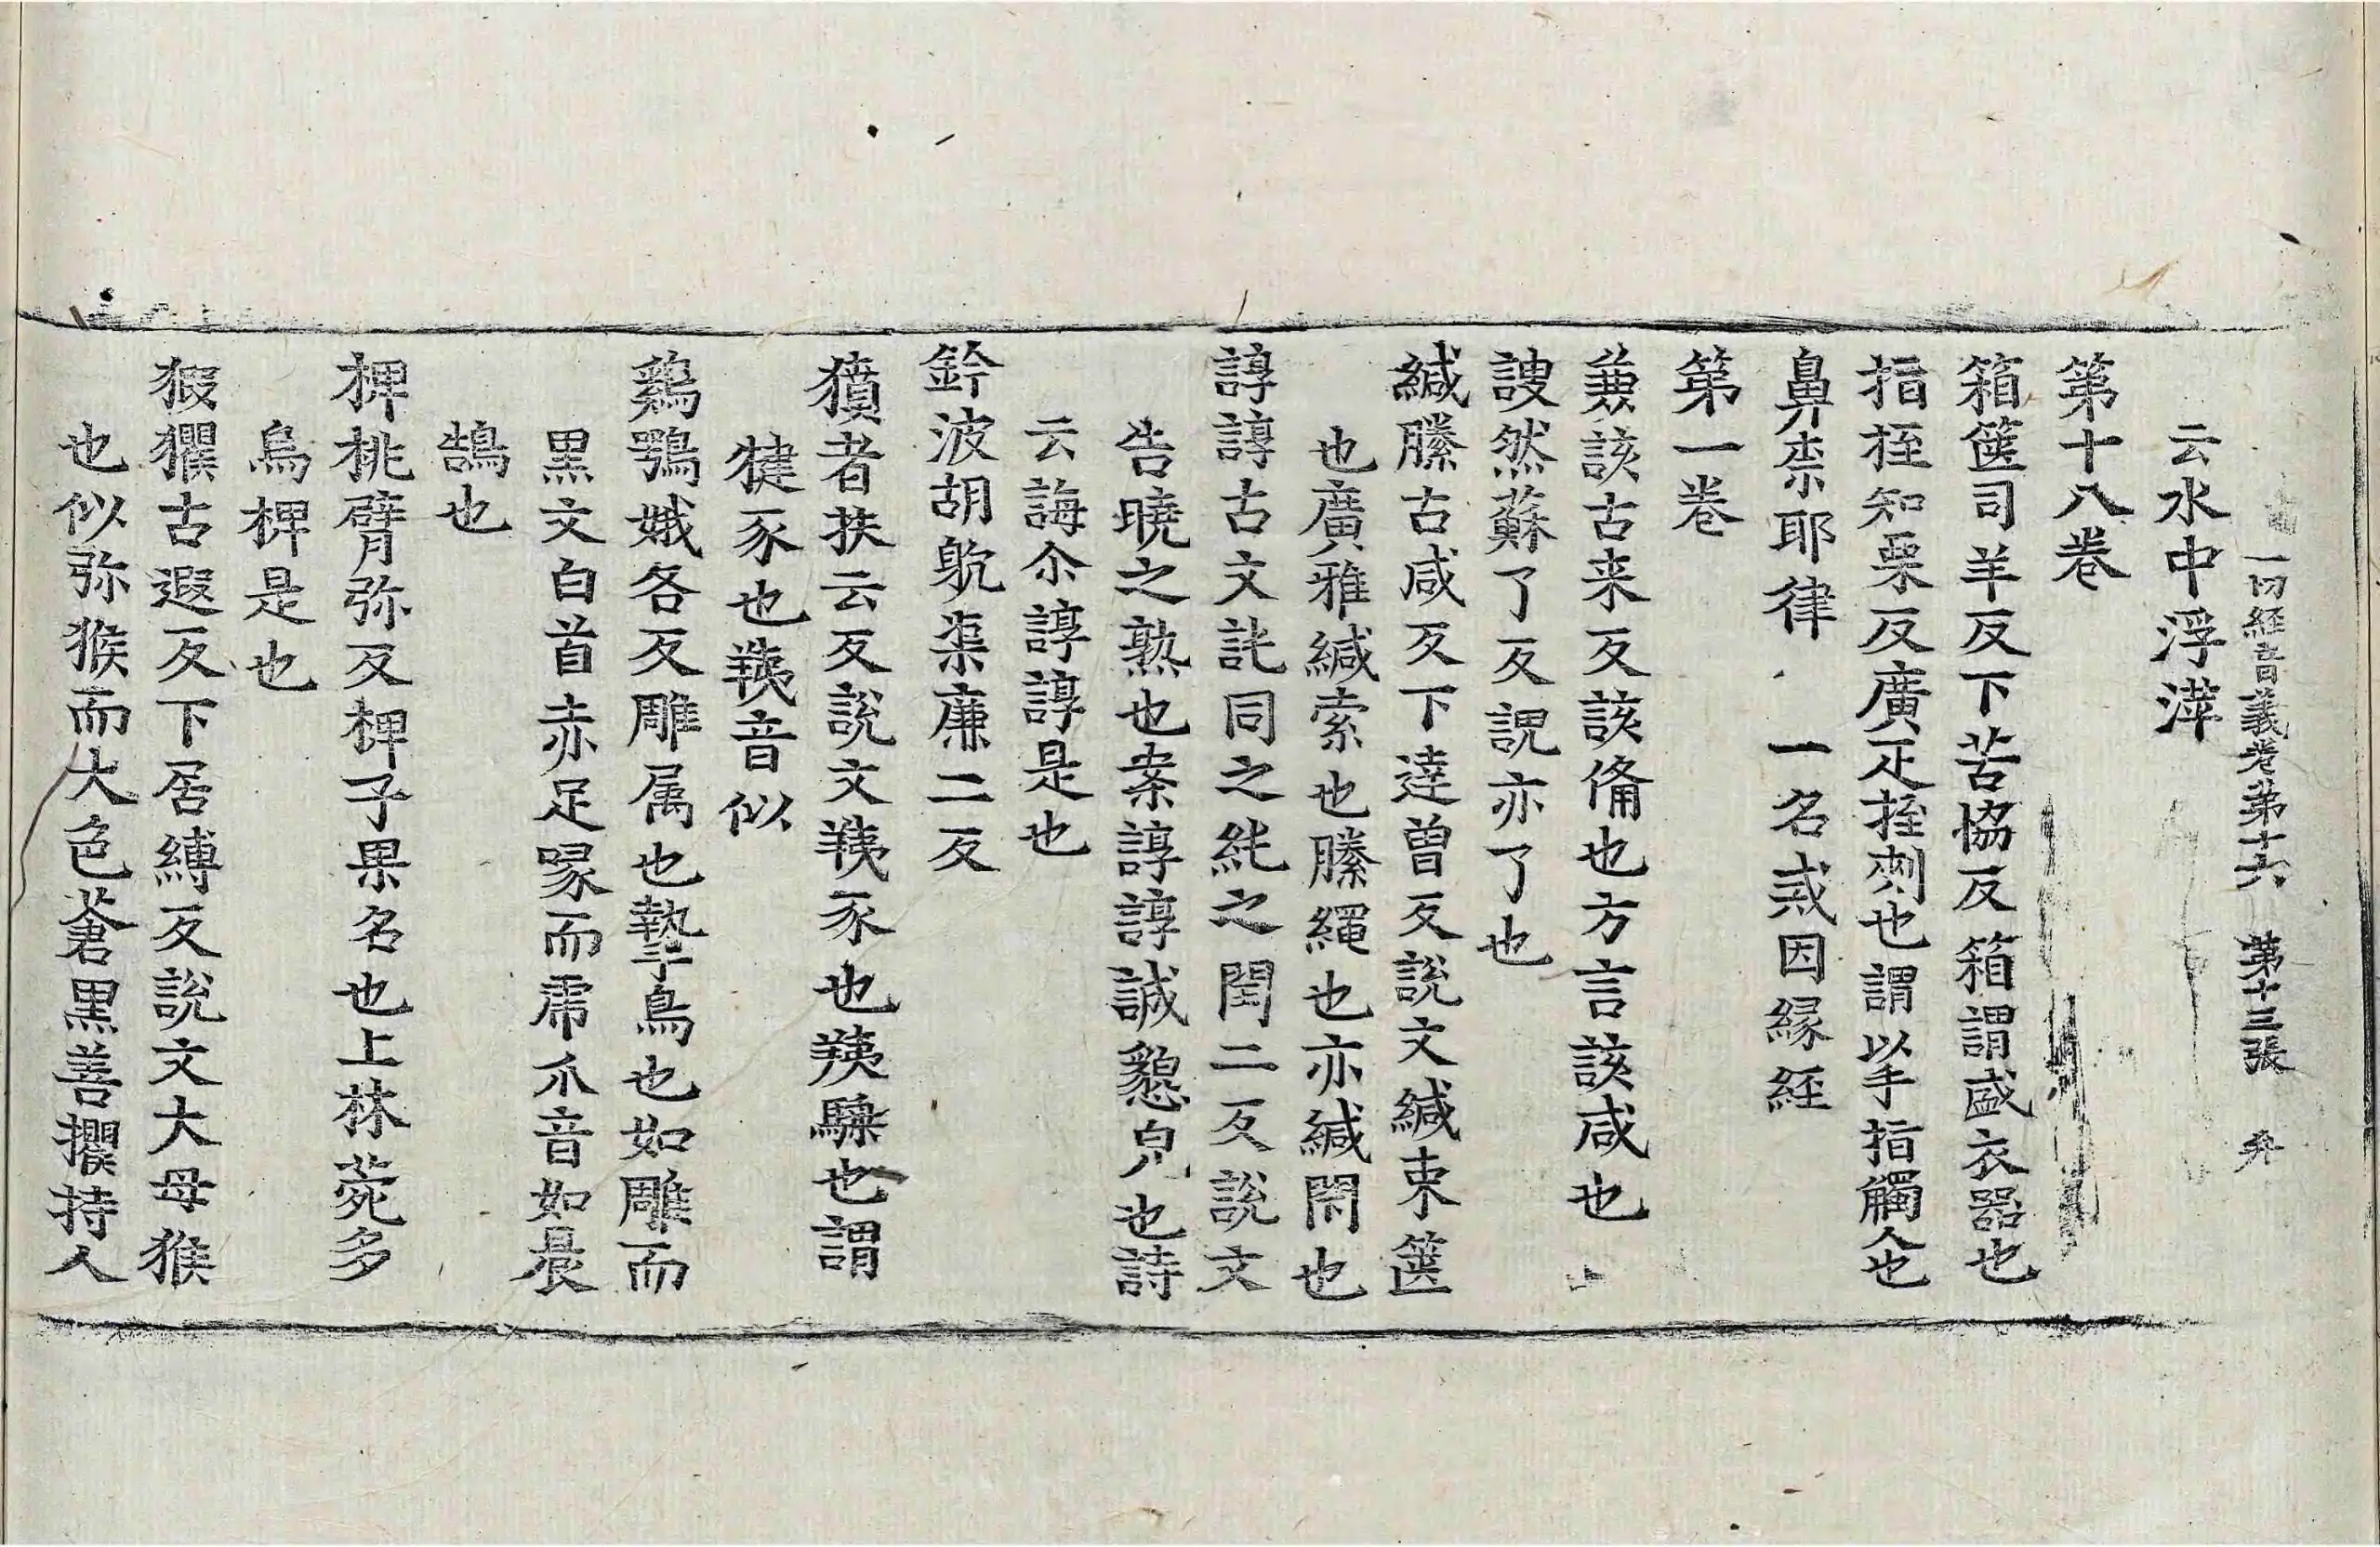 一切経音義卷苐十六 苐十三張 弁
云水中浮滓
苐十八卷
箱箧司羊反下苦協反箱謂盛衣器也
指挃知栗反廣疋挃刺也謂以手指觸人也
鼻柰耶律 一名戒因緣経
苐一卷
兼該古来反該俻也方言該咸也
謏然蘇了反謏亦了也
緘縢古咸反下達曽反說文緘束箧
也廣雅緘索也縢繩也亦緘閇也
諄諄古文訰同之純之閏二反說文
告曉之熟也案諄諄誠懇皃也詩
云誨尒諄諄是也
鈐波胡躭渠廉二反
豶者扶云反說文羠豕也羠騬也謂
犍豕也羠音似
鷄鶚娥各反雕属也鷙鳥也如雕而
黒文白首赤足喙而虎爪音如晨
鵠也
椑桃臂弥反椑子果名也上林菀多
烏椑是也
猳玃古遐反下居縛反說文大母猴
也似弥猴而大色蒼黒善攫持人